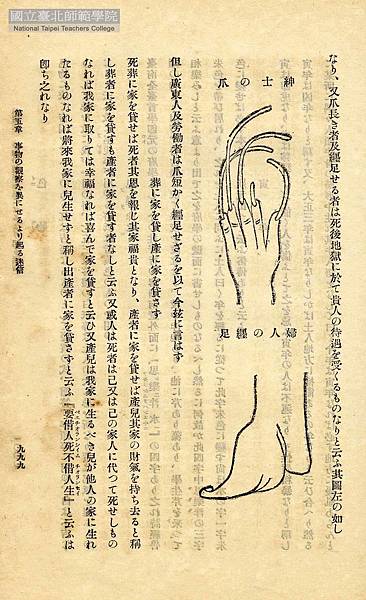 國立臺北師範學院
National Taipei Teachers College
なり、又爪長き者及纏足せる者は死後地獄に於て貴人の待遇を受くるものなりと云ふ其圖左の如し
紳士の爪
婦人の纏足
但し廣東人及勞働者は爪短かく纏足せざるを以て今玆に言はず
葬に家を貸し產に家を貸さず
死葬に家を貸せば死者其恩を報じ其家福貴となり、產者に家を貸せば產兒其家の財氣を持ち去ると稱
し葬者に家を貸すも產者に家を貸す者なしと云ふ又或人は死者は己又は己の家人に代つて死せしもの
なれば我家に取りては幸福なれば喜んで家を貸すと云ひ又產兒は我家に生るべき兒が他人の家に生れ
たるものなれば將來我家に兒生せずと稱し出產者に家を貸さずと云ふ『要借人死不借人生』と云ふは
卽ち之れなり
第五章 事物の觀察を異にせるより起る迷信
一九九